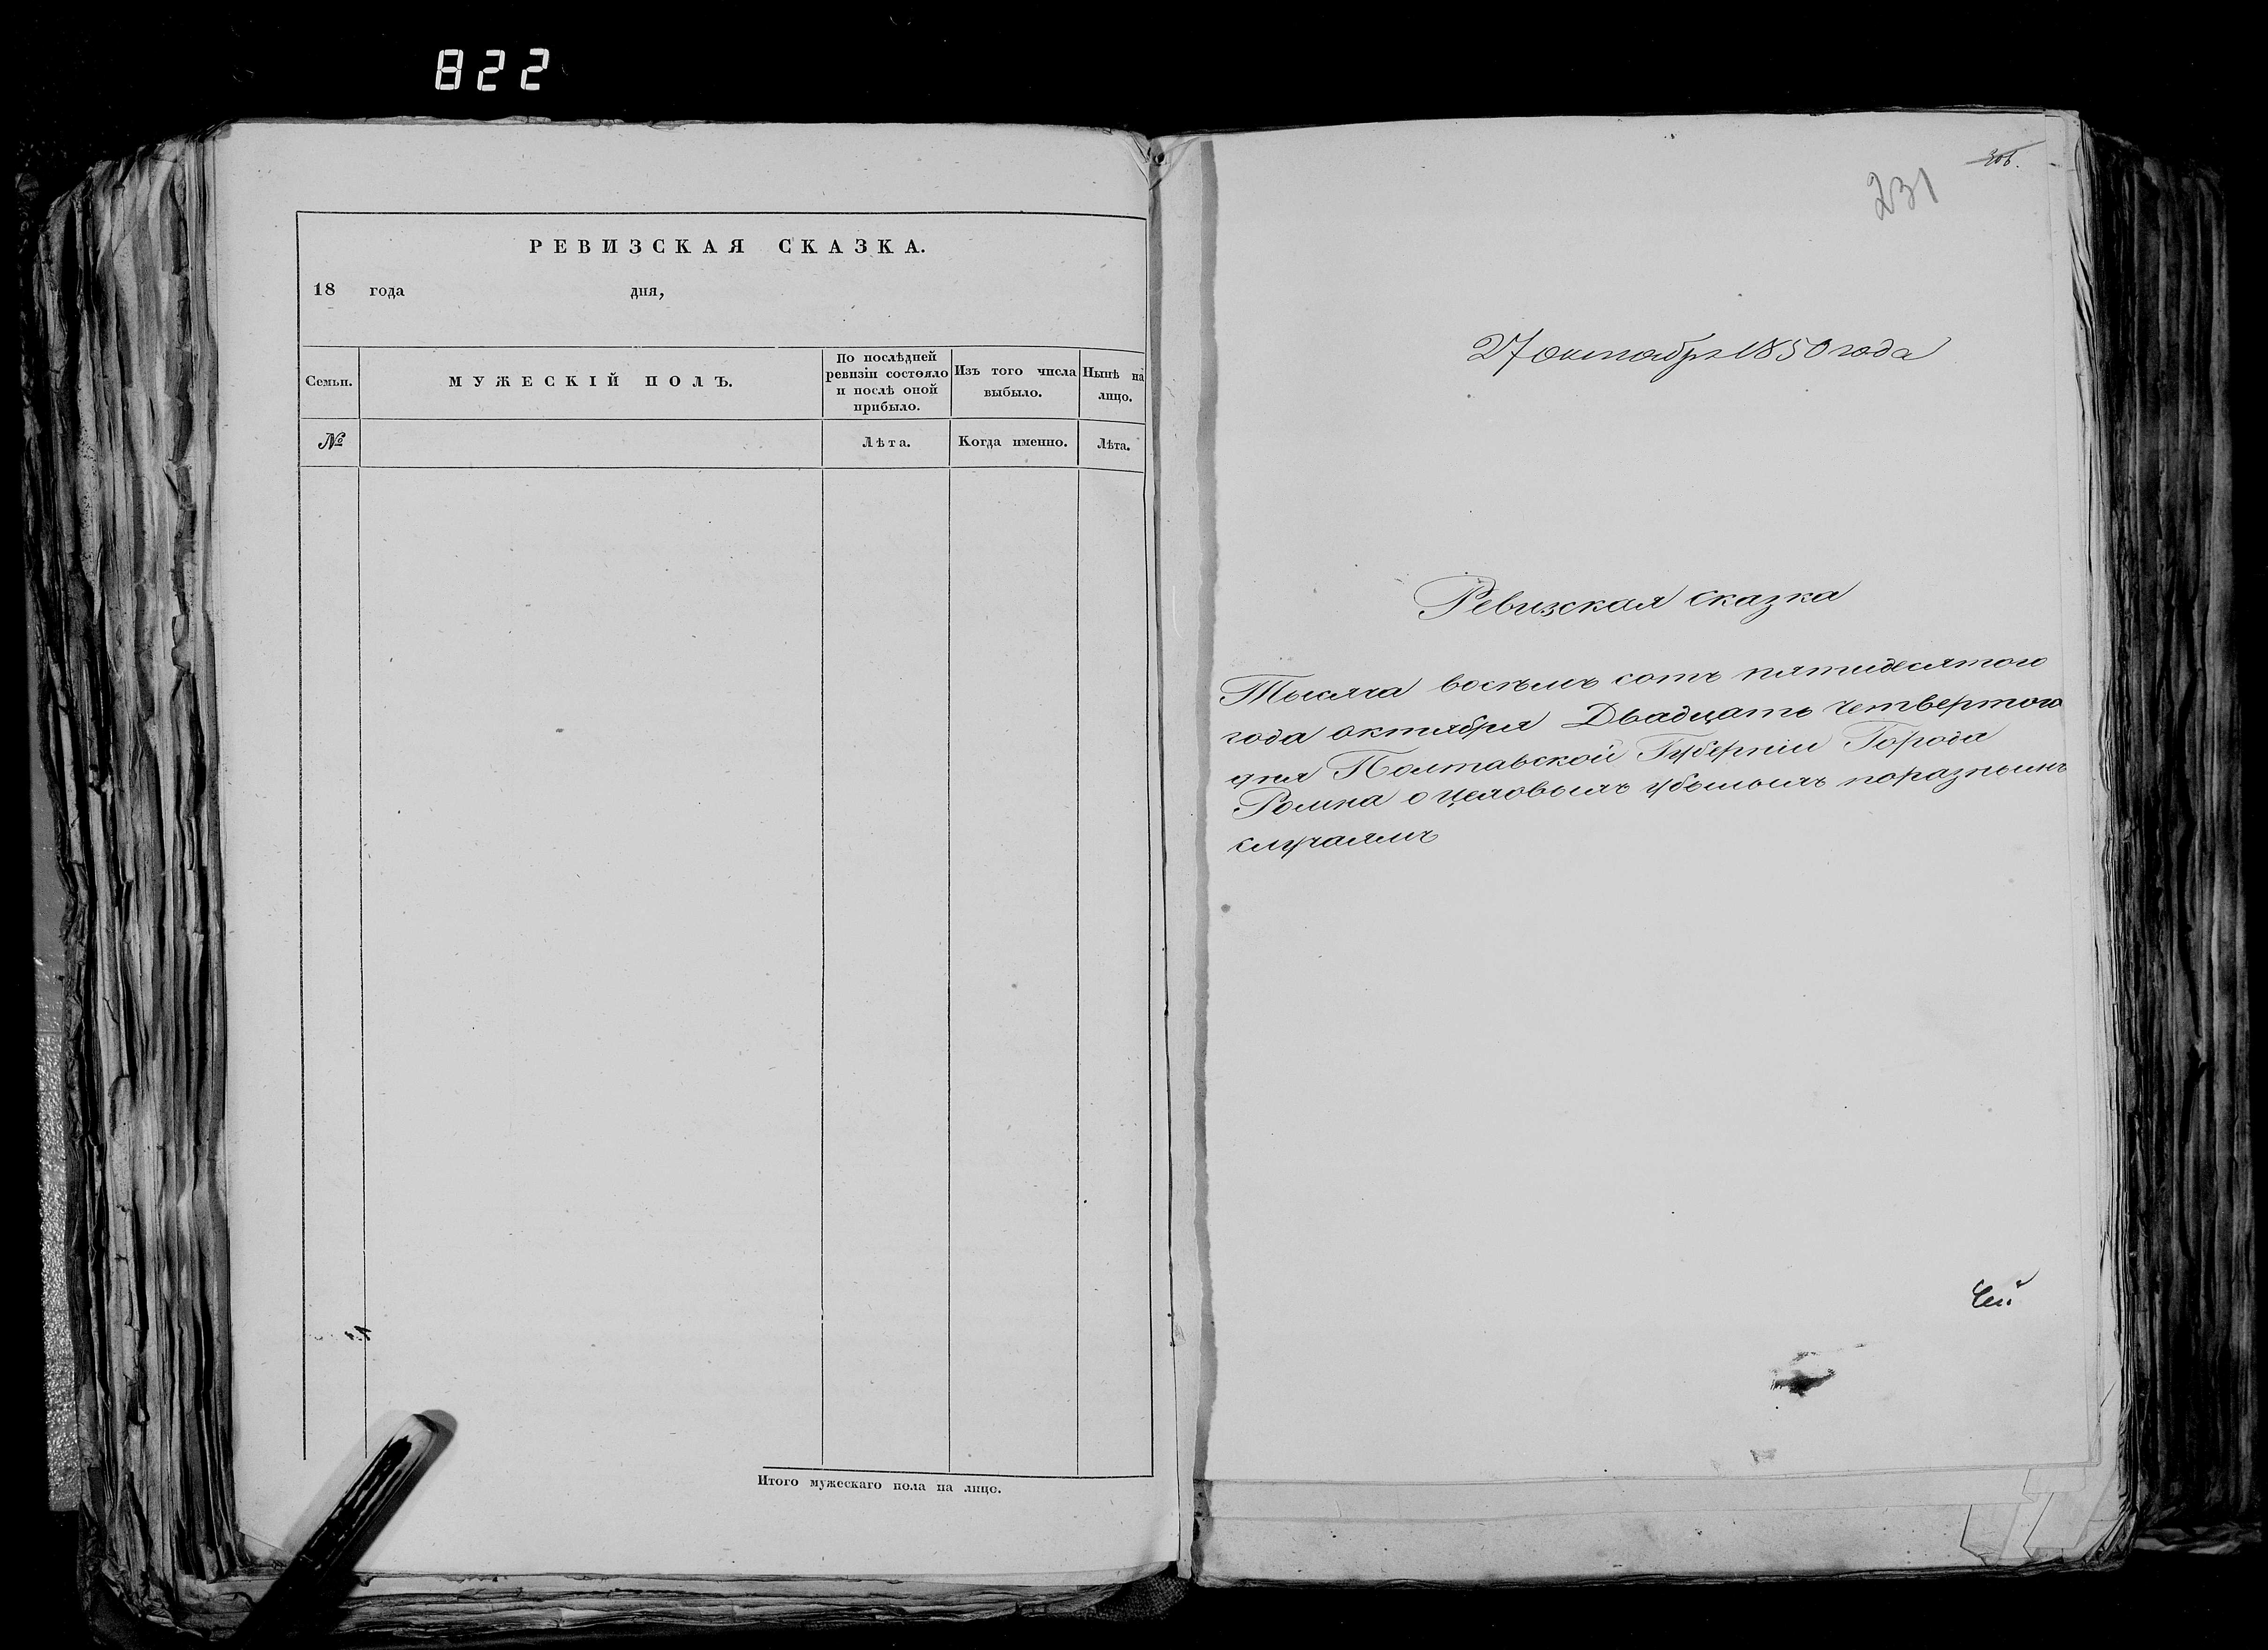 822
РЕВИЗСКАЯ СКАЗКА.
18 года дня,
Семьи.
МУЖЕСКІЙ ПОЛЪ.
По послѣдней
ревизіи состояло
и послѣ оной
прибыло.
Изъ того числа
выбыло.
Нынѣ на
лицо.
№
Лѣта.
Когда именно.
Лѣта.
Итого мужескаго пола на лицо.
306.
231
27 октября 1850 года
Ревизская сказка
Тысяча восемь сотъ пятидесятого
года октября Двадцать четвертого
дня Полтавской Губерніи Города
Ромна о цеховыхъ убылыхъ поразнымъ
случаямъ